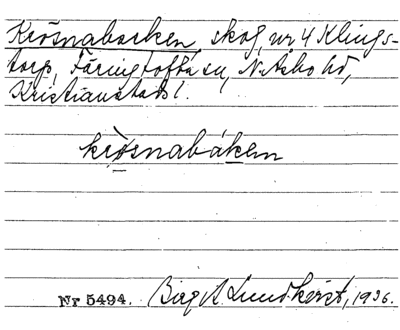 Krösnabacken, skog, nr 4 Klings-
torp, Färingtofta sn, N. Åsbo hd,
Kristianstads l.
krö̀snabákem
Nr 5494. Birgit Lundkvist, 1936.